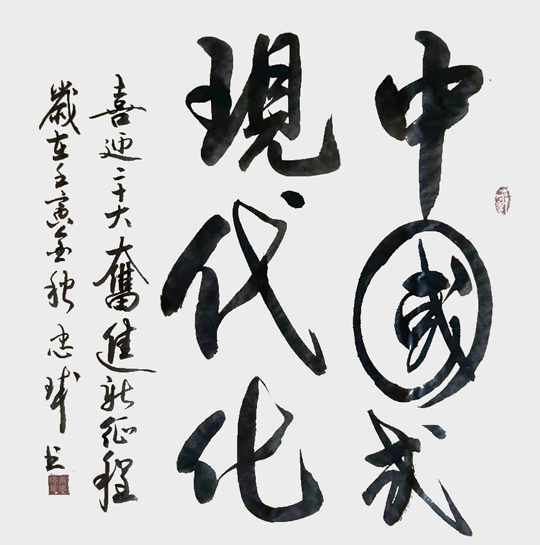 中國式
現代化
喜迎二十大奮進新征程
歲在壬寅金秋忠球书